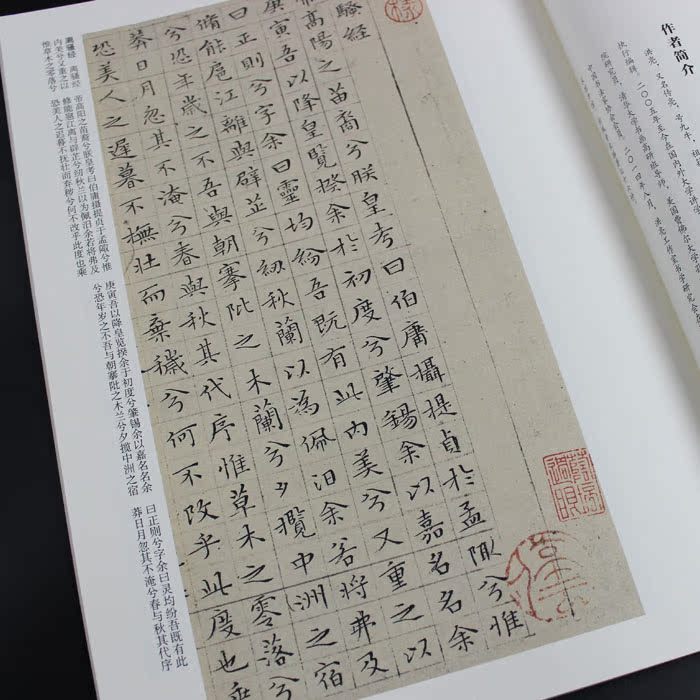 作者简介
洪亮，又名传亮，号九牛，祖
执行编辑。二〇〇五年至今在国内外大学讲学
院研究员、清华大学书画高研班导师、美国曹佛尔大学
二〇一四年八月，洪亮工作室书学研究会
騷經
帝高陽之苗裔兮朕皇考曰伯庸攝提貞於孟陬兮惟
庚寅吾以降皇覽揆余於初度兮肇錫余以嘉名名余
曰正則兮字余曰靈均紛吾既有此内美兮又重之以
脩能扈江離與辟芷兮紉秋蘭以為佩汨余若將弗及
兮恐年歲之不吾與朝搴阰之木蘭兮夕攬中洲之宿
莽日月忽其不淹兮春與秋其代序惟草木之零落兮
恐美人之遲暮不撫壯而棄穢兮何不改乎此度也乘
离骚经 离骚经 帝高阳之苗裔兮朕皇考曰伯庸摄提贞于孟陬兮惟 庚寅吾以降皇览揆余于初度兮肇锡余以嘉名名余 曰正则兮字余曰灵均纷吾既有此
内美兮又重之以 脩能扈江离与辟芷兮纫秋兰以为佩汨余若将弗及 兮恐年岁之不吾与朝搴阰之木兰兮夕揽中洲之宿 莽日月忽其不淹兮春与秋其代序
惟草木之零落兮 恐美人之迟暮不抚壮而弃秽兮何不改乎此度也乘